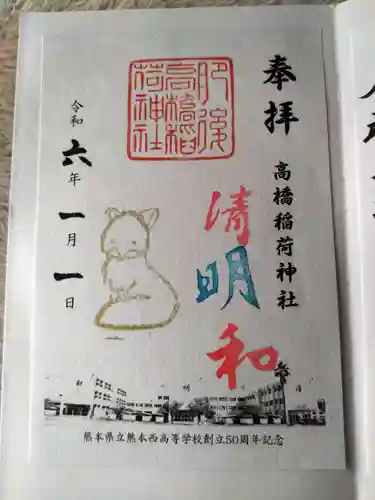 奉拝
高橋稲荷神社
肥後
高橋稲
荷神社
清明和
令和六年一月一日
清明和
熊本県立熊本西高等学校創立50周年記念